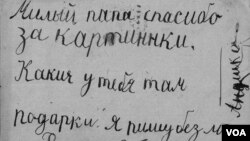 Милый папа спасибо
за картиннки.
Какие у тебя там
подарки. я пишу без ло
Андрюшка
VOA